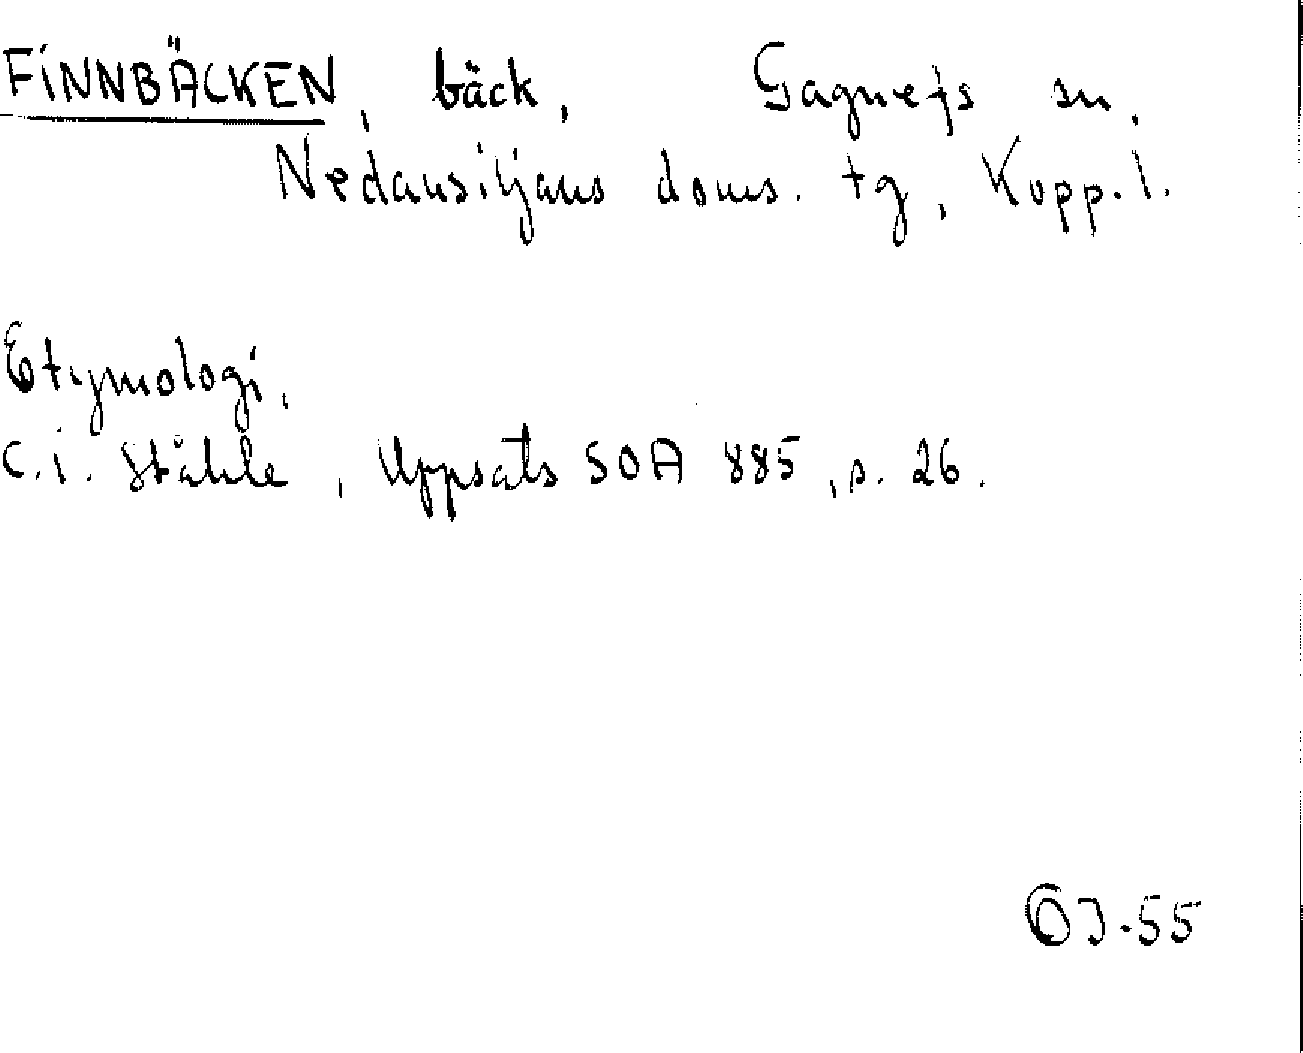 FINNBÄCKEN, bäck, Gagnefs sn,
Nedansiljans doms. tg, Kopp. l.
Etymologi,
C.I. Ståhle, Uppsats SOA 885, s. 26.
OJ-55